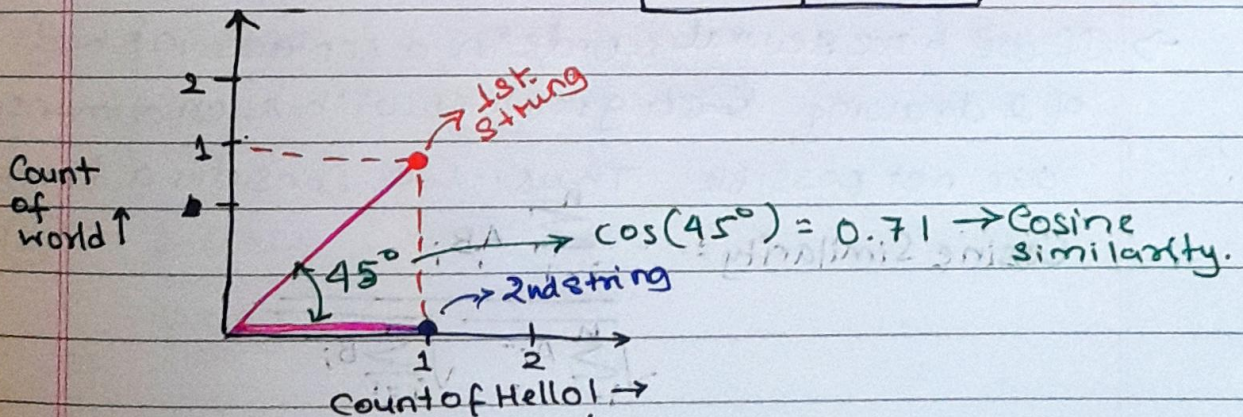 2
1st.
string
1
Count
of
world ↑
cos(45°) = 0.71 → Cosine
similarity.
45°
2nd string
1 2
Count of Hello! →